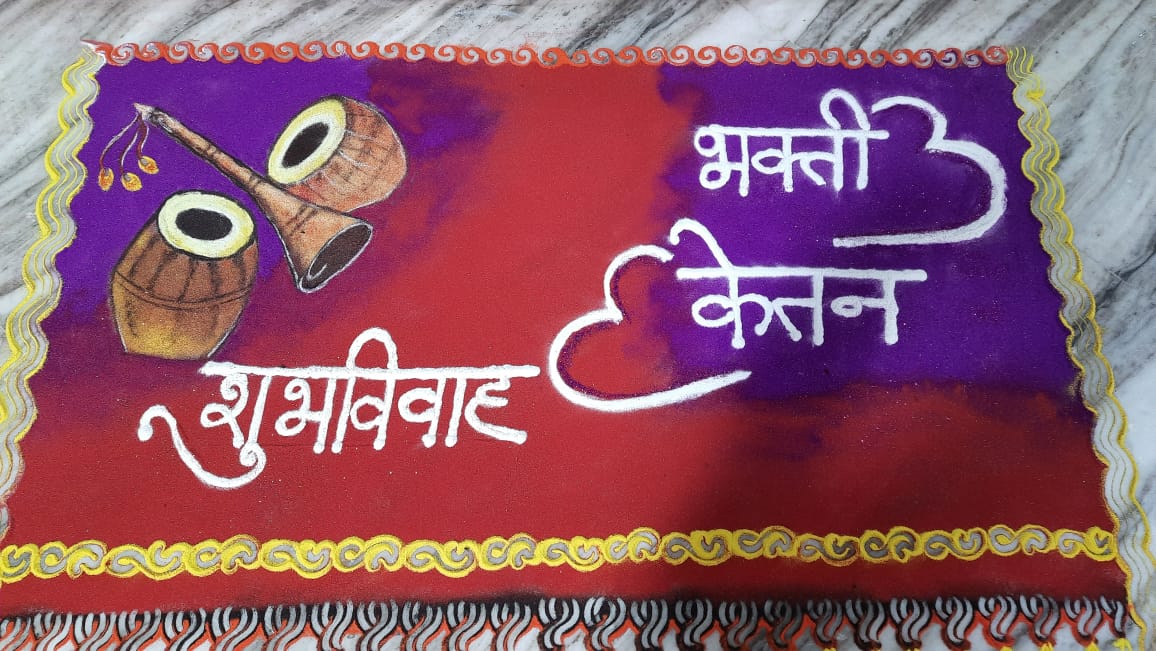 भक्ती
केतन
शुभविवाह